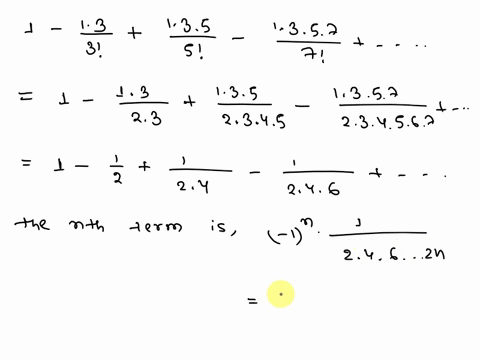 1 - 1.3/3! + 1.3.5/5! - 1.3.5.7/7! + - ....
= 1 - 1.3/2.3 + 1.3.5/2.3.4.5 - 1.3.5.7/2.3.4.5.6.7 + - ..
= 1 - 1/2 + 1/2.4 - 1/2.4.6 + - - - .
the nth term is, (-1)^n . 1/2.4.6...2n
=